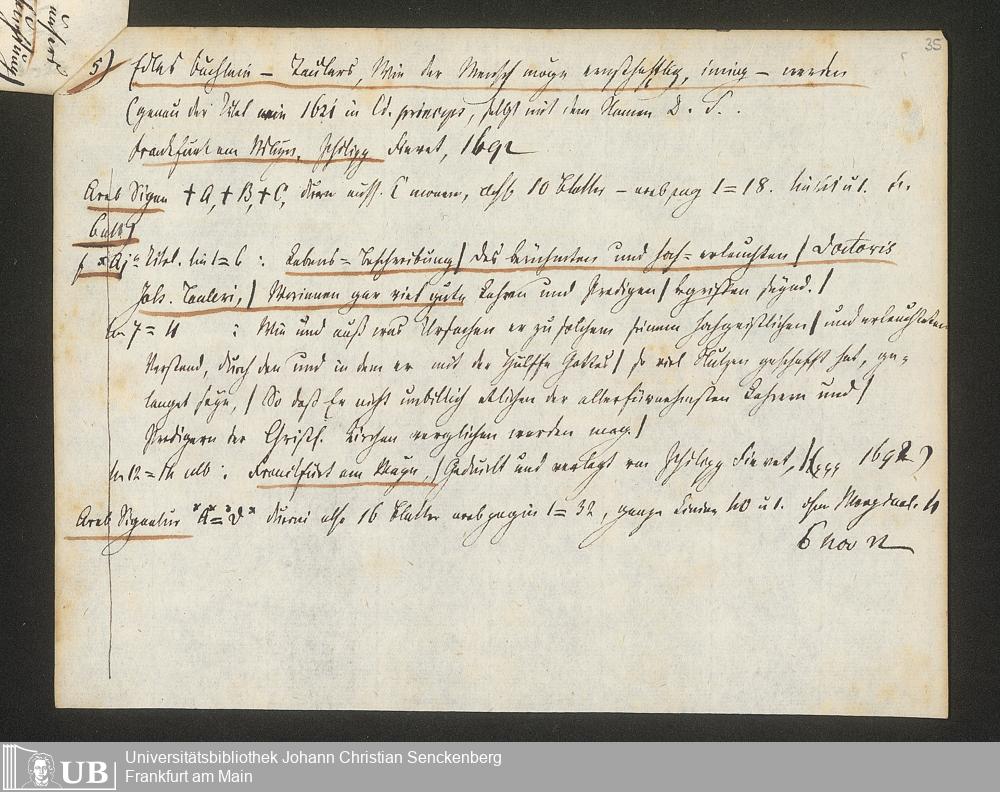 35
5) Edles Büchlein – Taulers, Wie der Mensch möge ernsthafftig, innig – werden
(genau der Titel wie 1621 in Ed. princeps, selbst mit dem Namen D. S.
Frankfurt am Mayn, Philipp Fievet, 1692
Arab Signa † A, † B, † C, duern auss. C monon, also 10 Blätter – arab. pag 1=18.
Titel. lin 1=6 : Lebens=Beschreibung/ des berühmten und hoch=erleuchten/ Doctoris
Joh. Tauleri,/ Worinnen gar viel gute Lehren und Predigen/ begriffen seynd./
lin 7=11 : Wie und auß was Ursachen er zu solchem seinem hochgeistlichen/ und erleuchteten
Verstand, durch den und in dem er mit der Hülffe Gottes/ so viel Nutzen geschafft hat, ge=
langet seye,/ So daß Er nicht unbillich etlichen der allerfürnehmsten Lehrern und/
Predigern der Christl. Kirchen verglichen werden mag./
lin 12=14 : Franckfurt am Mayn,/ Gedruckt und verlegt von Philipp Fievet, 1692
Arab Signatur A = D duerni also 16 Blätter arab pagin 1=32, ganze Linien 40 u 1. ohne Marginal.
6 Nov
Universitätsbibliothek Johann Christian Senckenberg
Frankfurt am Main
UB